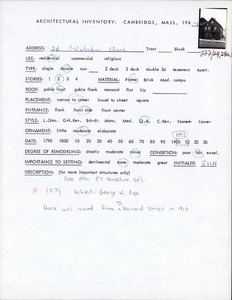 ARCHITECTURAL INVENTORY: CAMBRIDGE, MASS. 196
ADDRESS: Tract Block
USE: residential commercial religious
TYPE: single double row 2 deck 3 deck double 3d tenement Apart.
STORIES: 1 2 3 4 MATERIAL: Frame Brick Mod. compo
ROOF: gable front gable flank mansard flat hip
PLACEMENT: narrow to street broad to street square
ENTRANCE: flank front side front center
STYLE: L.Geo. Grk.Rev. Brkt. Mans. Med. Q.A. C.R. Neo- None
ORNAMENT: little moderate elaborate
DATE: 1790 1810 30 40 50 60 70 80 90 1900 10 20
DEGREE OF REMODELING: drastic moderate minor CONDITION: poor fair excel.
IMPORTANCE TO SETTING: detrimental none moderate great INITIALED
DESCRIPTION: (for more important structures only)
House was moved from Harvard Street in